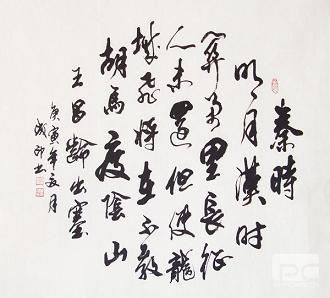 秦時
明月漢时
關萬里長征
人未還但使龍
城飛将在不教
胡馬度陰山
王昌齡出塞
庚寅年夏月